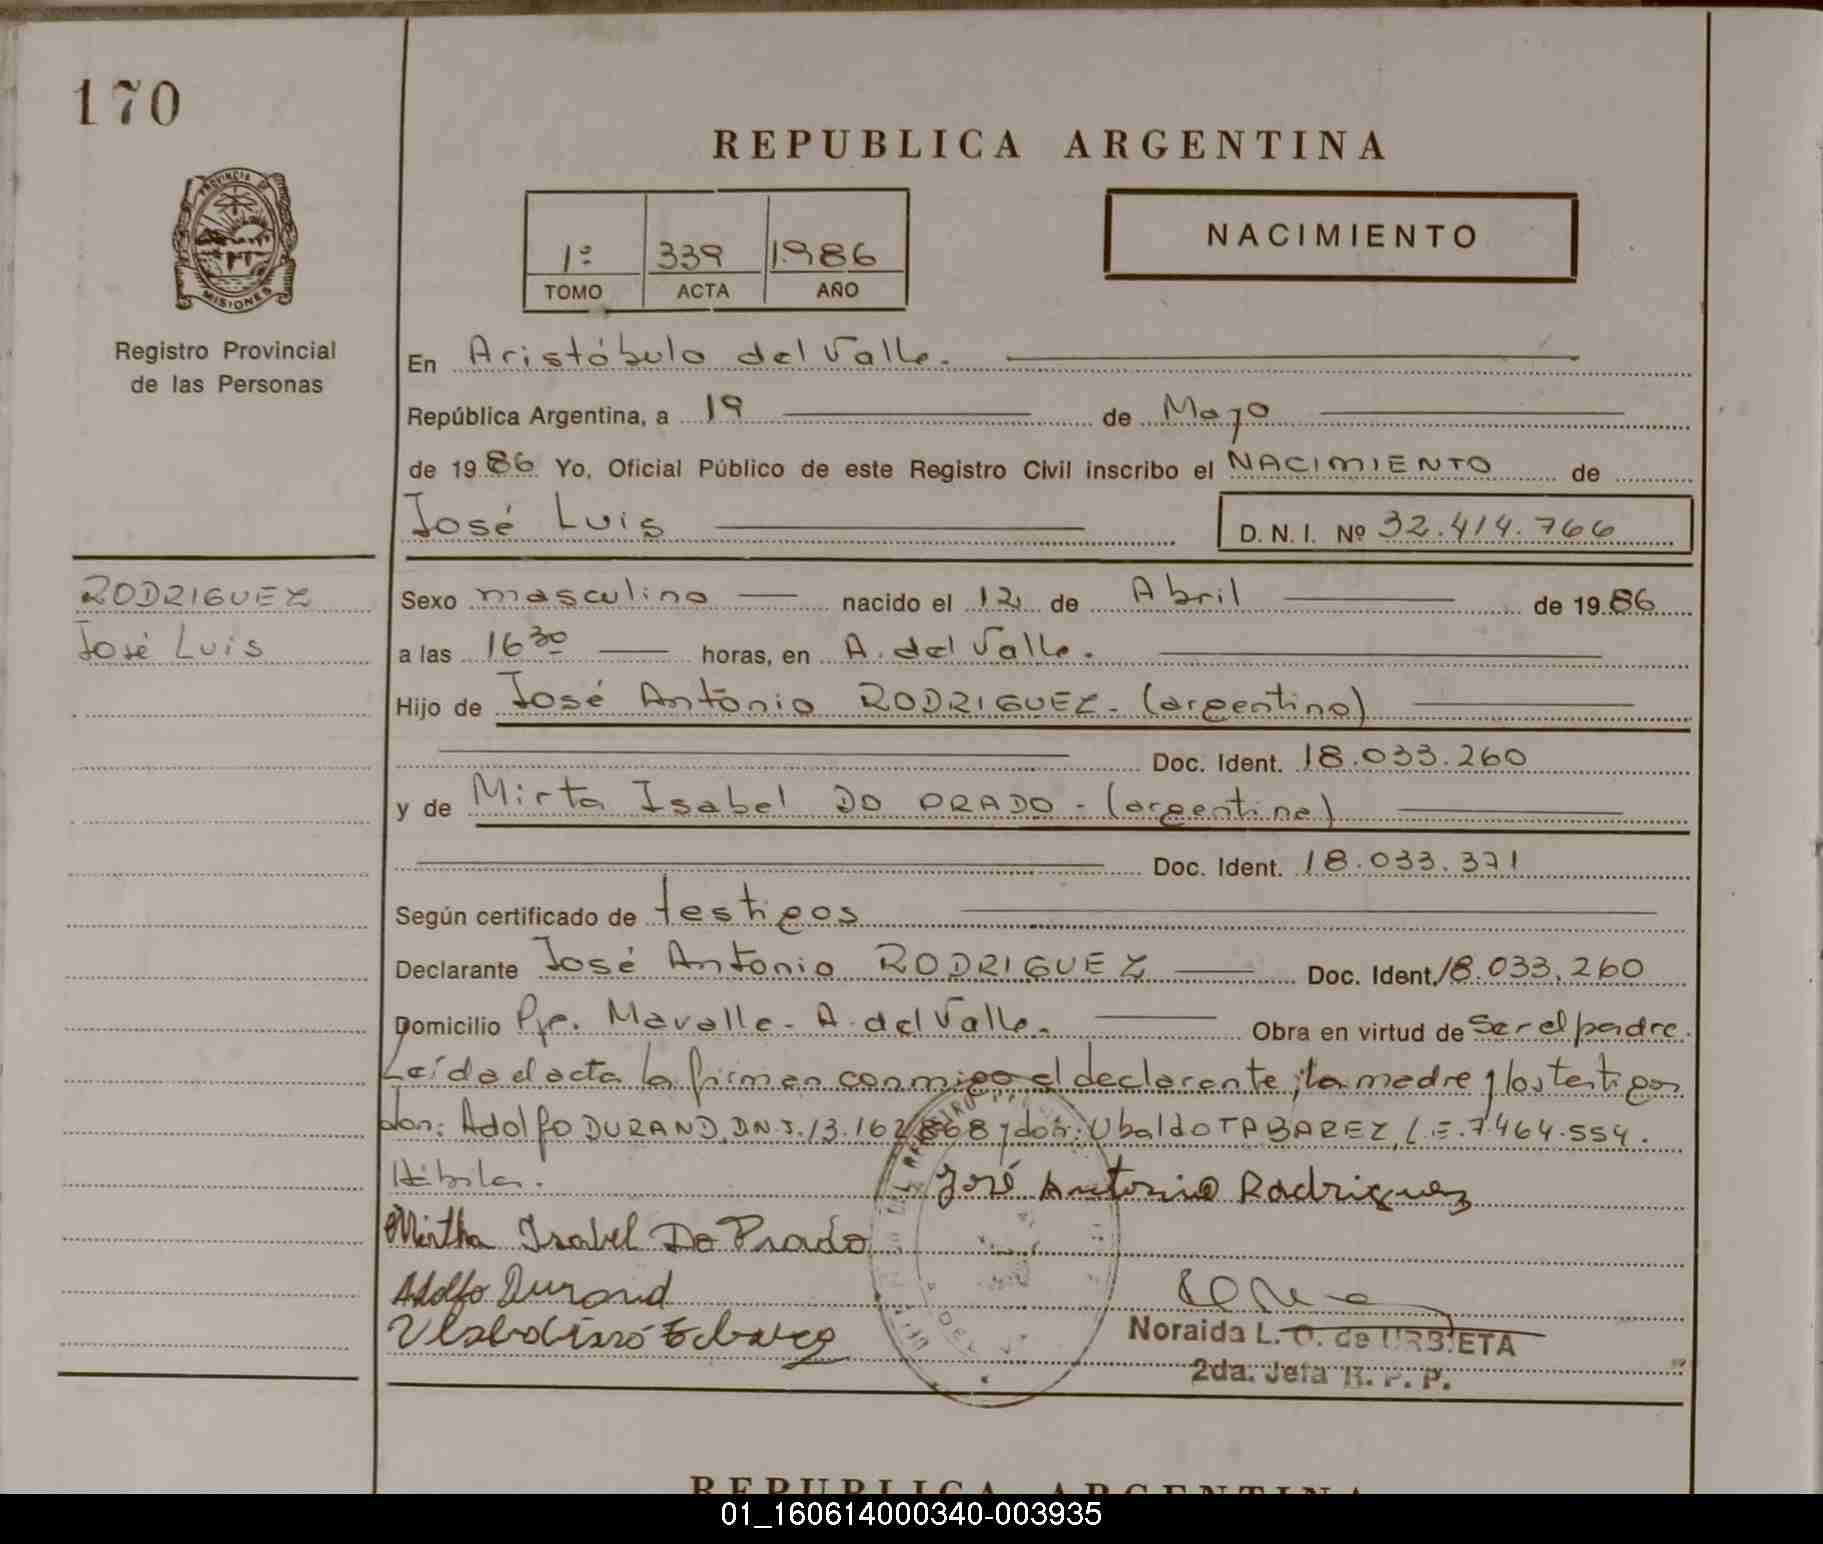 170
REPUBLICA ARGENTINA
PROVINCIA DE
MISIONES
Registro Provincial
de las Personas
1º 339 1986
TOMO ACTA AÑO
NACIMIENTO
En Aristóbulo del Valle.
República Argentina, a 19 de Mayo
de 1986 Yo, Oficial Público de este Registro Civil inscribo el NACIMIENTO de
José Luis D.N.I. Nº 32.414.766
RODRIGUEZ
José Luis
Sexo masculino nacido el 12 de Abril de 1986
a las 16 30 horas, en A. del Valle.
Hijo de José Antonio RODRIGUEZ - (argentino)
Doc. Ident. 18.033.260
y de Mirta Isabel DO PRADO - (argentina)
Doc. Ident. 18.033.371
Según certificado de testigos
Declarante José Antonio RODRIGUEZ Doc. Ident. 18.033.260
Domicilio Pje. Mavalle - A. del Valle. Obra en virtud de Ser el padre.
Leída el acta la firman conmigo el declarante, la madre y los testigos
don: Adolfo DURAND, DNI. 13.162868 y don: Ubaldo TABAREZ, L.E. 7.464.554.
José Antonio Rodriguez
Mirtha Isabel Do Prado
Adolfo Durand
Noraida L. O. de URBIETA
2da. Jefa R. P. P.
REPUBLICA ARGENTINA
01_160614000340-003935